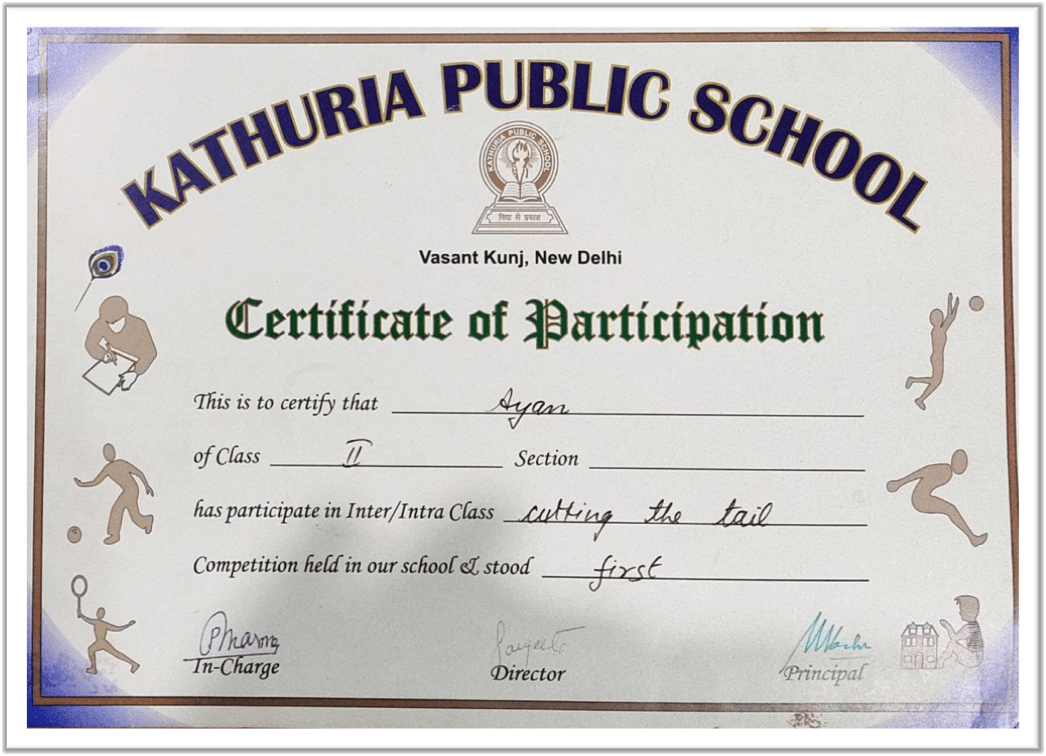 KATHURIA PUBLIC SCHOOL
KATHURIA PUBLIC SCHOOL
विद्या से प्रकाश
Vasant Kunj, New Delhi
Certificate of Participation
This is to certify that Ayan
of Class II Section
has participate in Inter/Intra Class cutting the tail
Competition held in our school & stood first
In-Charge Director Principal